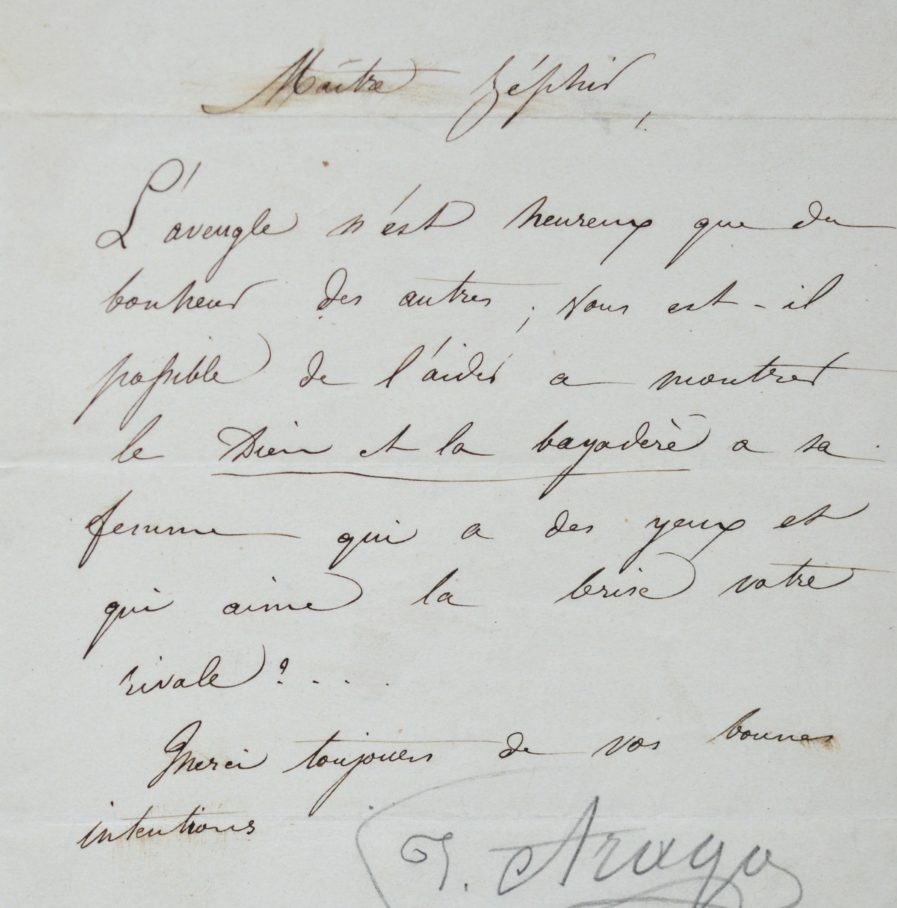 Maître Zéphir,
L'aveugle n'est heureux que du
bonheur des autres; vous est-il
possible de l'aider a montrer
le Dieu et la bayadère a sa
femme qui a des yeux et
qui aime la brise votre
rivale?....
Merci toujours de vos bonnes
intentions
J. Arago